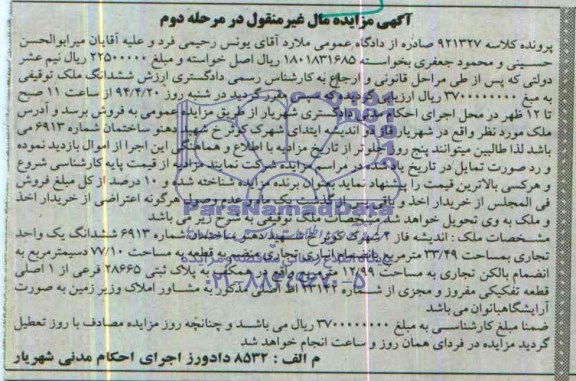 آگهی مزایده مال غیرمنقول در مرحله دوم
پرونده کلاسه ۹۲۱۳۲۷ صادره از دادگاه عمومی ملارد آقای یونس رحیمی فرد و علیه آقایان میرابوالحسن
حسینی و محمود جعفری بخواسته ۱۸۰۱۸۳۱۶۸۵ ریال اصل خواسته و مبلغ ۲۲۵۰۰۰۰۰ ریال نیم عشر
دولتی که پس از طی مراحل قانونی و ارجاع به کارشناس رسمی دادگستری ارزش ششدانگ ملک توقیفی
به مبلغ ۳۷۰۰۰۰۰۰۰۰ ریال ارزیابی گردید که مقرر گردید در شنبه روز ۹۴/۴/۲۰ از ساعت ۱۱ صبح
تا ۱۲ ظهر در محل اجرای احکام مدنی دادگستری شهریار از طریق مزایده عمومی به فروش برسد و آدرس
ملک مورد نظر واقع در شهریار فاز اندیشه ابتدای شهرک کوثر خ شهید دهنو ساختمان شماره ۶۹۱۳ می
باشد لذا طالبین میتوانند پنج روز جلوتر از تاریخ مزایده با اطلاع و هماهنگی این اجرا از اموال بازدید نموده
و رد صورت تمایل در تاریخ یاد شده در مراسم مزایده شرکت نمایند مزایده از قیمت پایه کارشناسی شروع
و هرکسی بالاترین قیمت را پیشنهاد نماید بعنوان برنده مزایده شناخته شده و ۱۰ درصد از کل مبلغ فروش
فی المجلس از خریدار اخذ و باقی پس از گذشت یک ماه و عدم وصول هرگونه اعتراضی از خریدار اخذ
و ملک به وی تحویل خواهد شد می باشد
مشخصات ملک : اندیشه فاز ۲ شهرک کوثر خ شهید دهنو ساختمان شماره ۶۹۱۳ ششدانگ یک واحد
تجاری بمساحت ۳۳/۴۹ مترمربع بانضمام انباری تجاری قطعه به مساحت ۷۷/۱۰ دسیمترمربع به
انضمام بالکن تجاری به مساحت ۱۲/۹۹ مترمربع واقع در همکف به پلاک ثبتی ۲۸۶۶۵ فرعی از ۱ اصلی
قطعه تفکیکی مفروز و مجزی از شماره اصلی مذکور به مشاور املاک وزیر زمین به صورت
آرایشگاهبانوان می باشد
ضمنا مبلغ کارشناسی به مبلغ ۳۷۰۰۰۰۰۰۰۰ ریال می باشد و چنانچه روز مزایده مصادف با روز تعطیل
گردید مزایده در فردای همان روز و ساعت انجام خواهد شد
م الف : ۸۵۳۲ دادورز اجرای احکام مدنی شهریار
ParsNamadData
۰۲۱-۸۸۳۴۹۶۷۰-۵